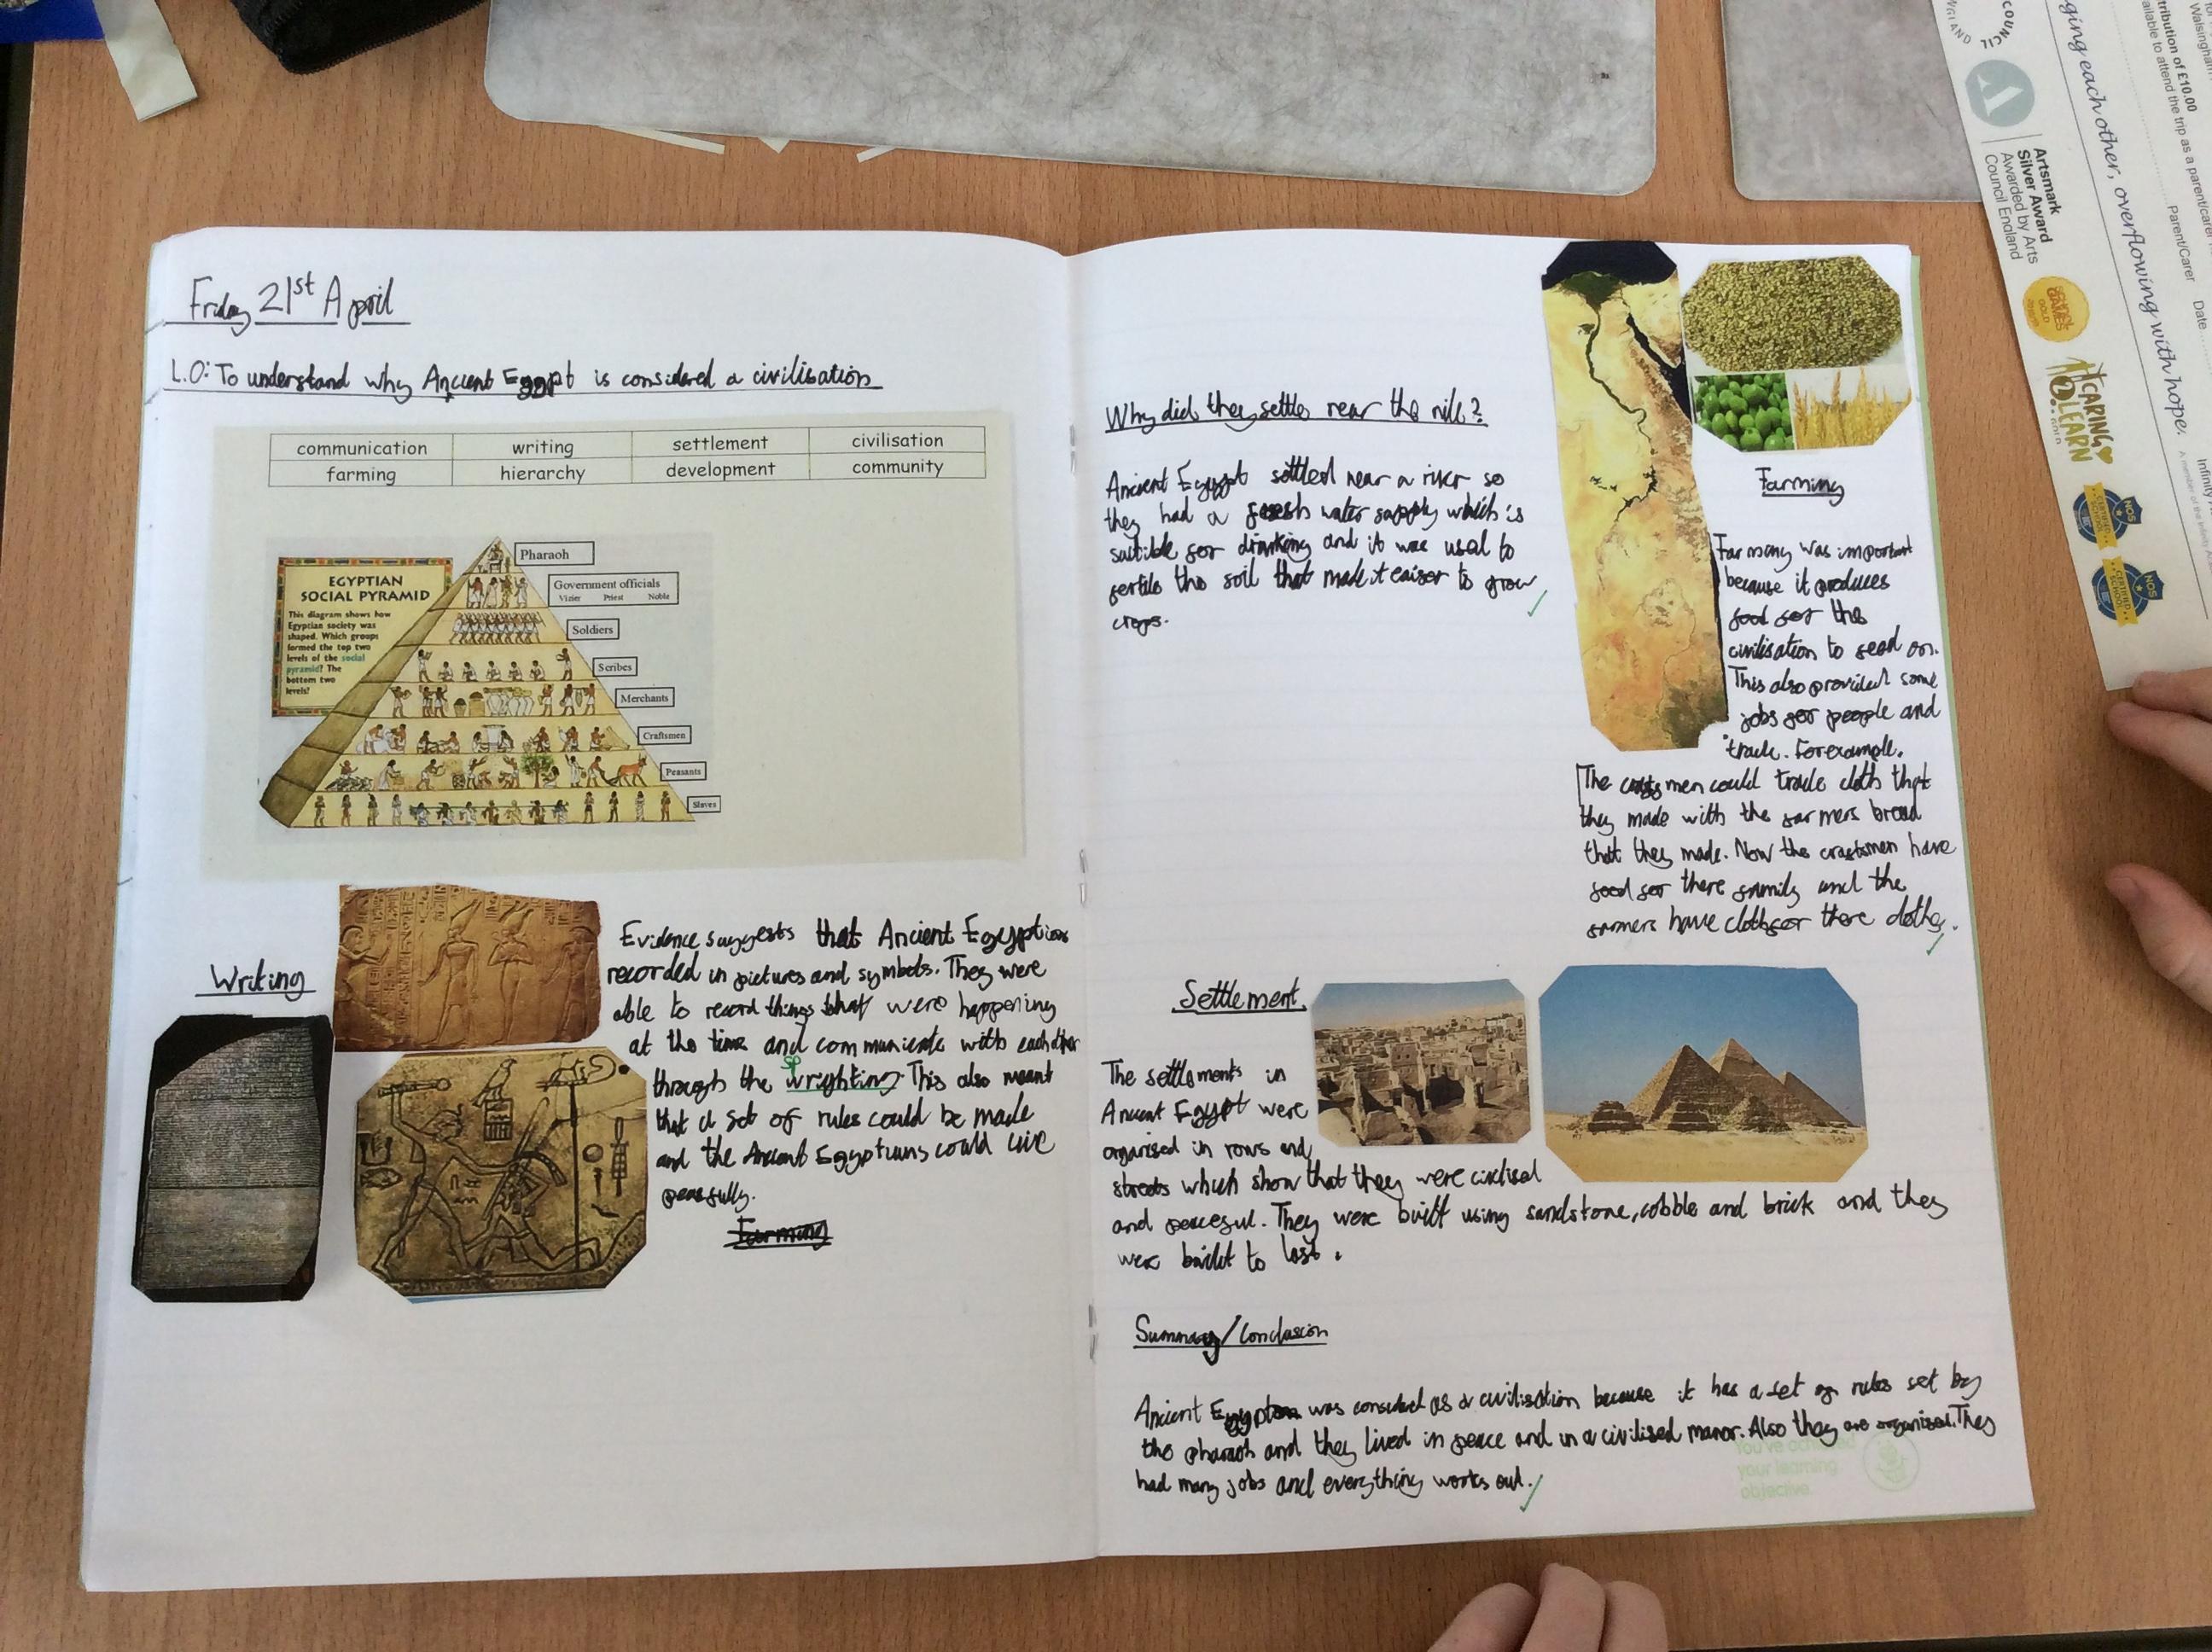 Friday 21st April
L.O: To understand why Ancient Egypt is considered a civilisation
communication writing settlement civilisation
farming hierarchy development community
EGYPTIAN
SOCIAL PYRAMID
This diagram shows how
Egyptian society was
shaped. Which groups
formed the top two
levels of the social
pyramid? The
bottom two
levels?
Pharaoh
Government officials
Vizier Priest Noble
Soldiers
Scribes
Merchants
Craftsmen
Peasants
Slaves
Writing
Evidence suggests that Ancient Egyptians
recorded in pictures and symbols. They were
able to record things that were happening
at the time and communicate with each other
through the wrighting. This also meant
sp
that a set of rules could be made
and the Ancient Egyptians could live
peasfully.
Farming
Why did they settle near the nile?
Ancient Egypt settled near a river so
they had a fresh water supply which is
suitible for drinking and it was used to
fertile the soil that made it eaiser to grow
crops.
Farming
Farming was important
because it produces
food for the
civilisation to feed on.
This also provided some
jobs for people and
trade. For example.
The craftsmen could trade cloth that
they made with the farmers bread
that they made. Now the craftsmen have
food for there family and the
farmers have cloth for there clothes.
Settlement
The settlements in
Ancient Egypt were
organised in rows and
streets which show that they were civilised
and peaceful. They were built using sandstone, cobble and brick and they
were built to last.
Summary/Conclusion
Ancient Egypt was considered as a civilisation because it has a set of rules set by
the pharaoh and they lived in peace and in a civilised manor. Also they are organised. They
had many jobs and everything works out.
You've achieved
your learning
objective.
COUNCIL
ENGLAND
Artsmark
Silver Award
Awarded by Arts
Council England
CARING
2 LEARN
GOLD
SCHOOL GAMES
GOLD
NOS
CERTIFIED
SCHOOL
NOS
CERTIFIED
SCHOOL
ging each other, overflowing with hope.
Walsingham
tribution of £10.00
ailable to attend the trip as a parent/carer
Parent/Carer Date
Infinity